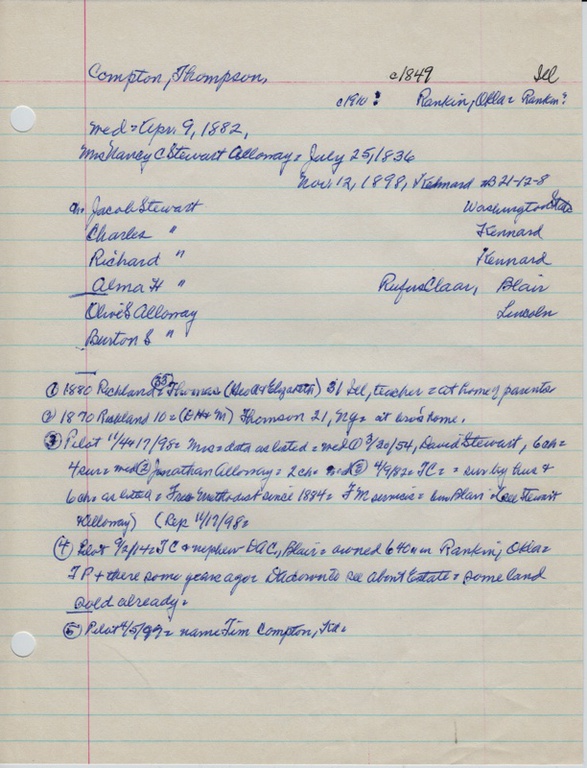 Compton, Thompson, c1849 Ill
c1910: Rankin, Okla = Rankin?
Med = Apr. 9, 1882,
Mrs Nancy C Stewart Alloway = July 25, 1836
Nov 12, 1898, Kennard B 21-12-8
Ch. Jacob Stewart Washington State
Charles " Kennard
Richard " Kennard
Alma H " Rufus Claar, Blair
Olive S Alloway Lincoln
Burton S "
① 1880 Richland 33 = Thomas (Geo C & Elizabeth) 31 Ill, teacher = at home of parents
② 1870 Richland 10 = (E H & M) Thomson 21, = at bro's home.
③ Pilot 11/17/98 = Mrs = data as listed = wed ① 3/20/54, David Stewart, 6ch =
4 sur = wed ② Jonathan Alloway = 2ch = wed ③ 4/9/82 = TC = = sur by hus &
6ch = as listed = Free Methodist since 1884 = F M services = bur Blair = (see Stewart
& Alloway) (Rep 11/17/98 =
④ Pilot 9/2/14 = TC & nephew D.A.C., Blair = owned 640 in Rankin, Okla =
TP & there some years ago = down to see about Estate = some land
sold already =
⑤ Pilot 4/5/99 = name Tim Compton, =